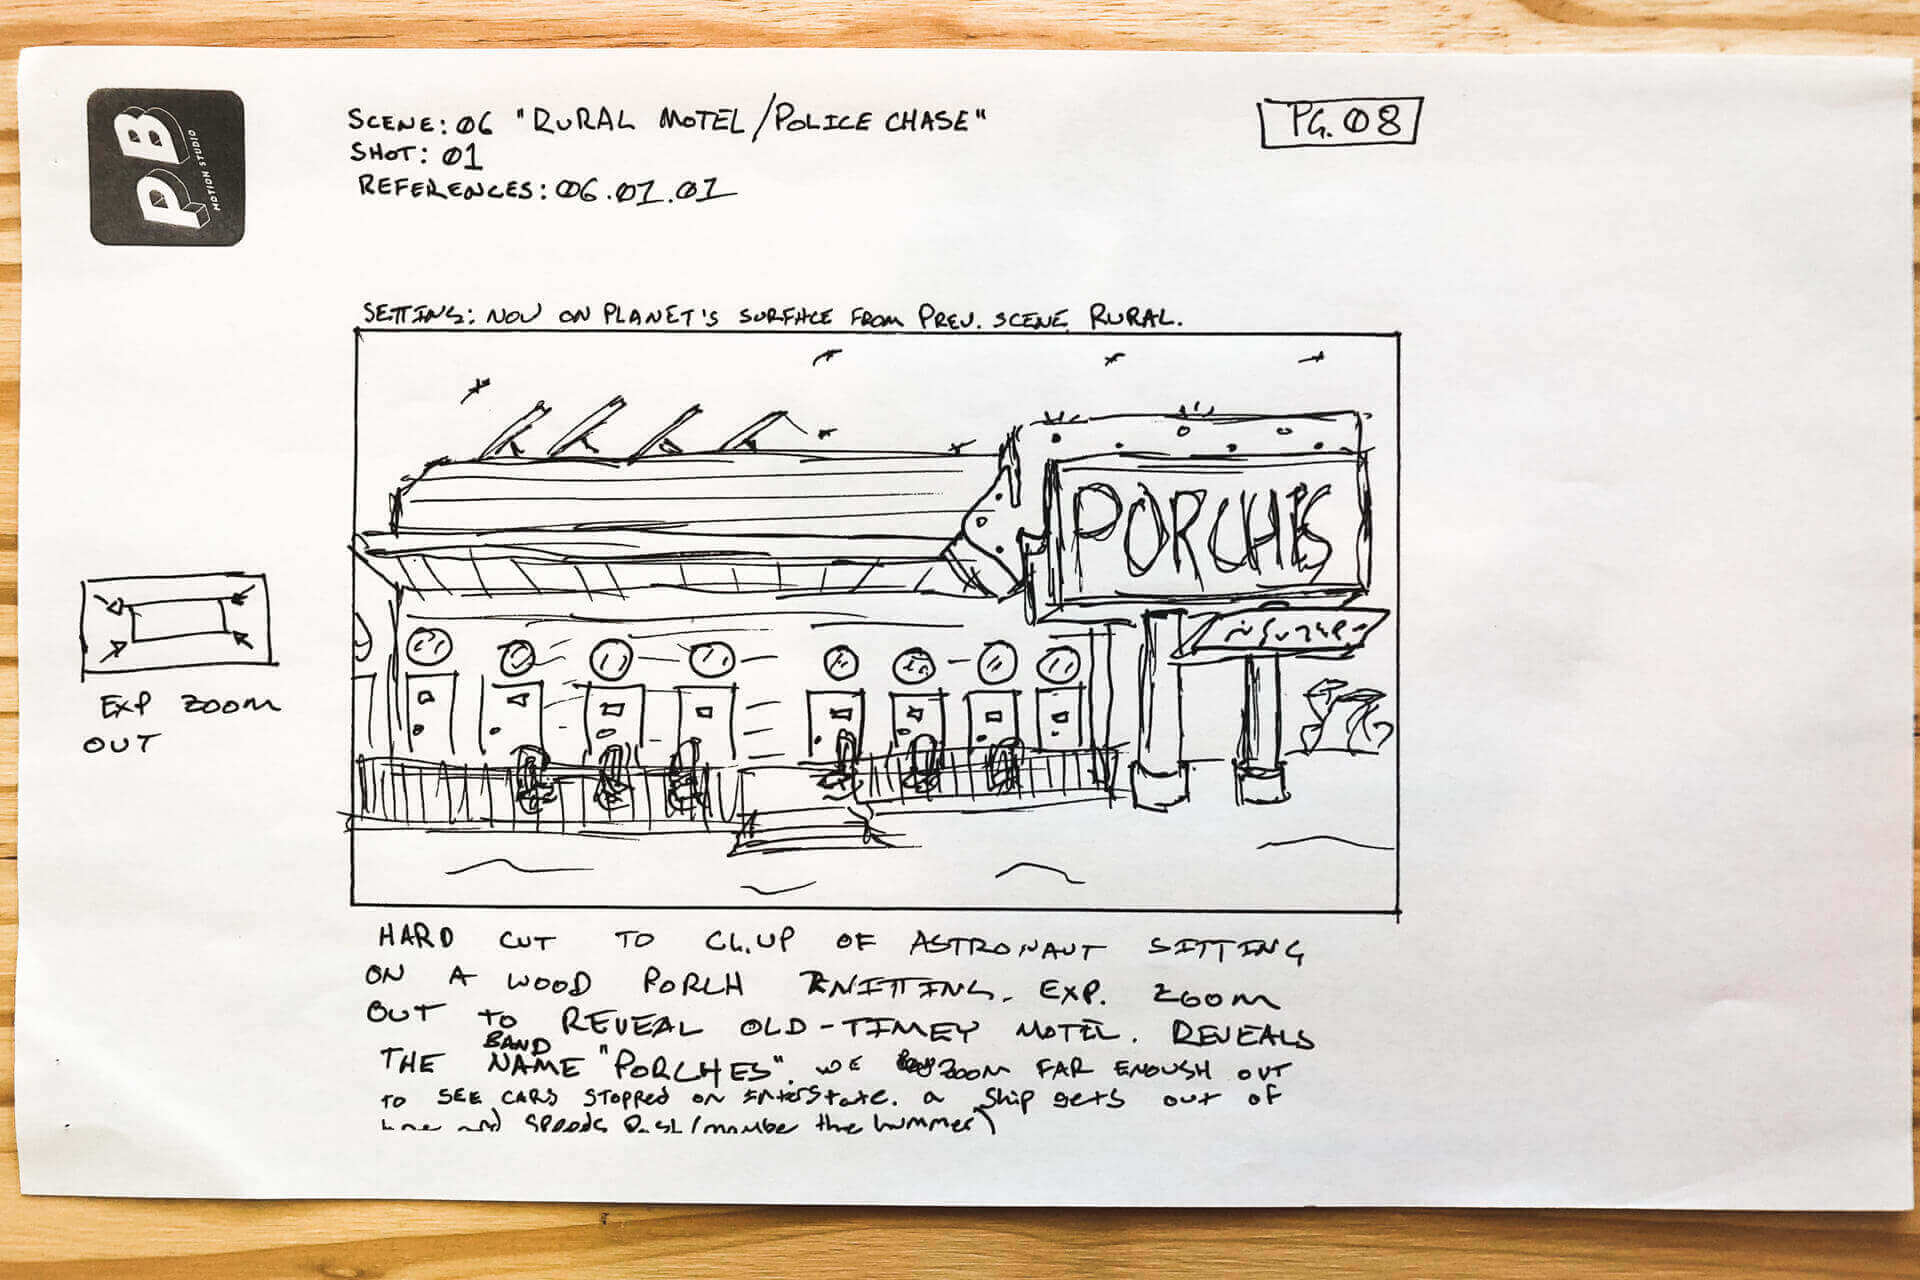 PB
MOTION STUDIO
SCENE: 06 "RURAL MOTEL/POLICE CHASE"
PG. 08
SHOT: 01
REFERENCES: 06.01.01
SETTING: NOW ON PLANET'S SURFACE FROM PREV. SCENE. RURAL.
PORCHES
EXP ZOOM
OUT
HARD CUT TO CL.UP OF ASTRONAUT SITTING
ON A WOOD PORCH KNITTING. EXP. ZOOM
OUT TO REVEAL OLD-TIMEY MOTEL. REVEALS
THE BAND NAME "PORCHES". WE ZOOM FAR ENOUGH OUT
TO SEE CARS STOPPED ON INTERSTATE. a ship gets out of
line and speeds past (maybe the hummer)